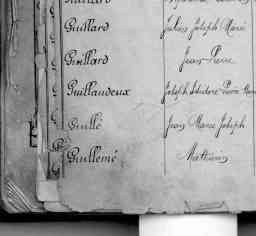 Guillard Julien Joseph Marie
Guillard Jean Pierre
Guillaudeux Joseph Isidore Pierre Marie
Guillé Jean Marie Joseph
Guillemé Mathurin